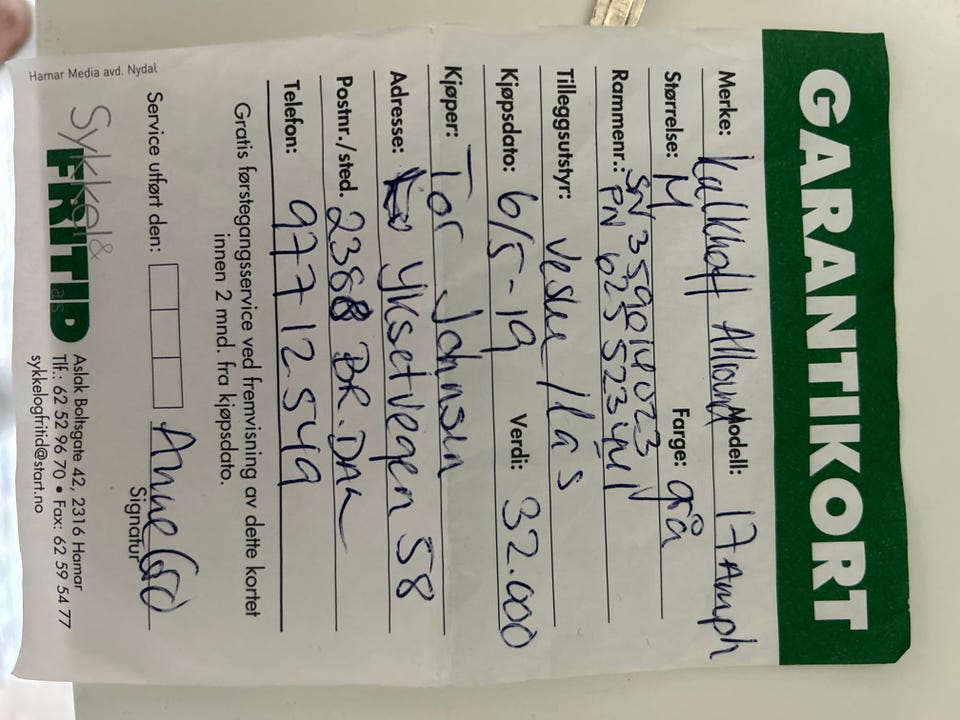 GARANTIKORT
Merke: Kalkhoff Allround Modell: 17 Amph
Størrelse: M Farge: grå
Rammenr.: SN 359014023
PN 625523
Tilleggsutstyr: Veske / lås
Kjøpsdato: 6/5-19 Verdi: 32.000
Kjøper: Tor Johnsen
Adresse: Yksetvegen 58
Postnr./sted. 2388 BR.DAL
Telefon: 977 12 549
Gratis førstegangsservice ved fremvisning av dette kortet
innen 2 mnd. fra kjøpsdato.
Service utført den: Anne
Signatur
Sykkel &
FRITID as
Aslak Boltsgate 42, 2316 Hamar
Tlf.: 62 52 96 70 • Fax: 62 59 54 77
sykkelogfritid@start.no
Hamar Media avd. Nydal